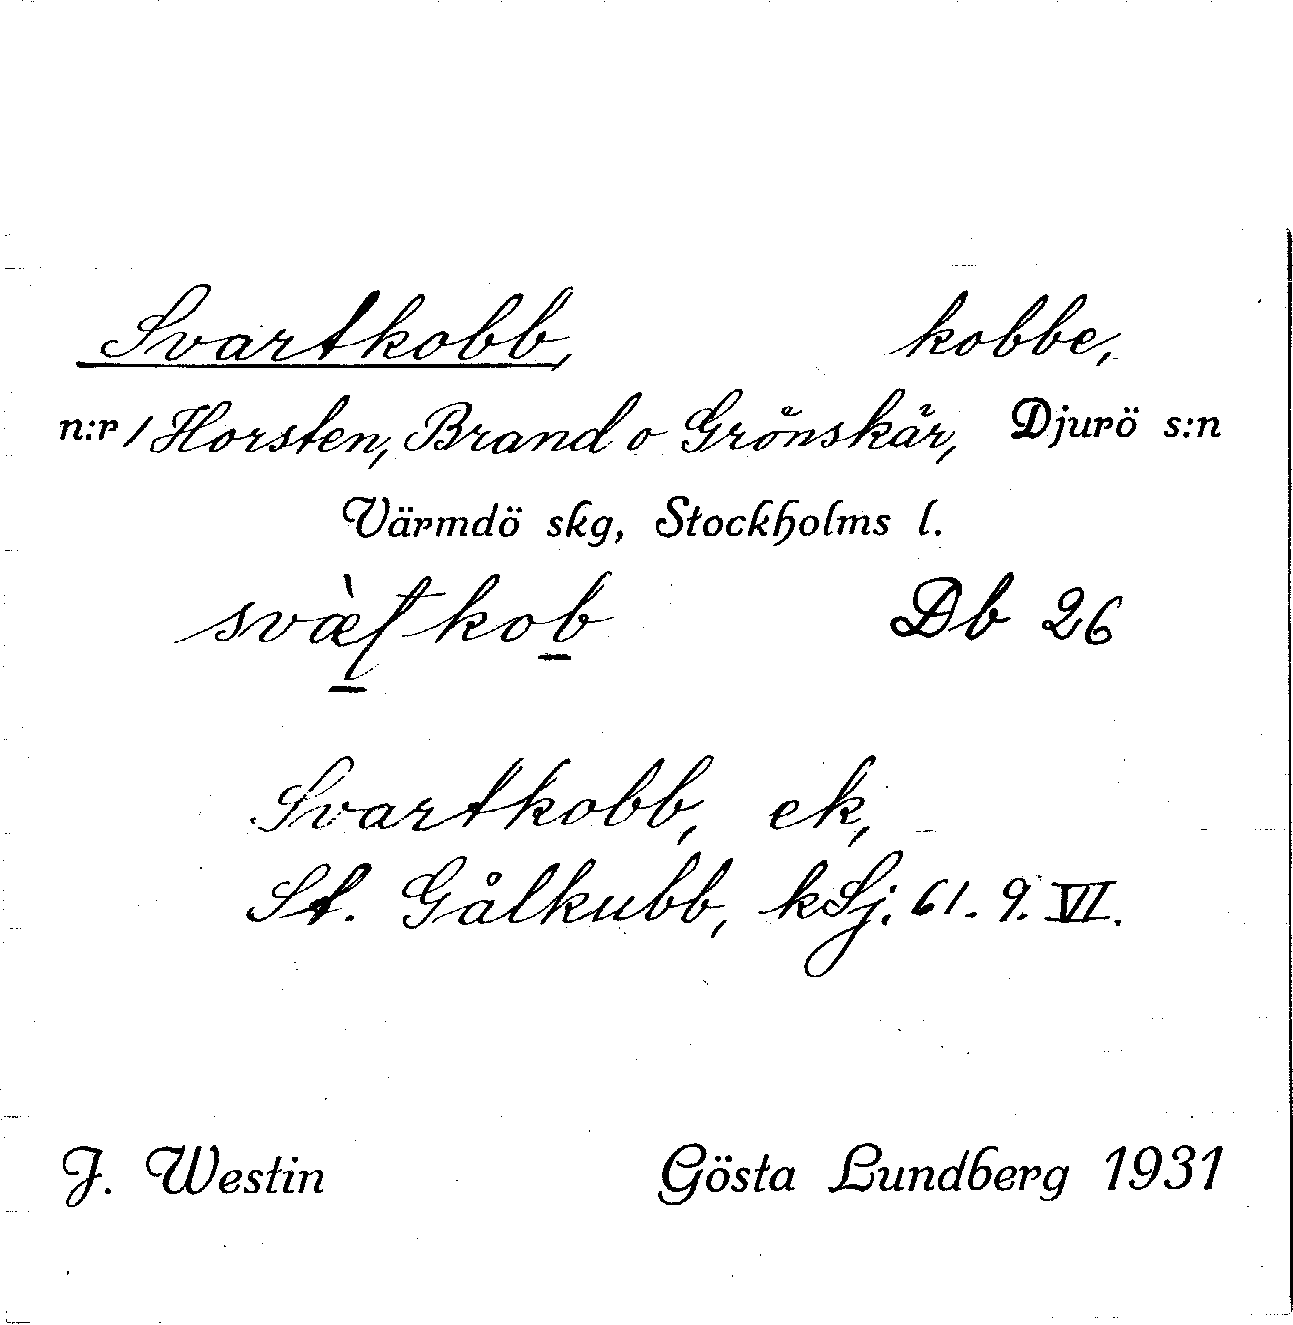 Svartkobb, kobbe,
n:r / Horsten, Brand o Grönskär, Djurö s:n
Värmdö skg, Stockholms l.
Db 26
Svartkobb, ek,
St. Gålkubb, kSj. 61. 9. VI.
J. Westin Gösta Lundberg 1931